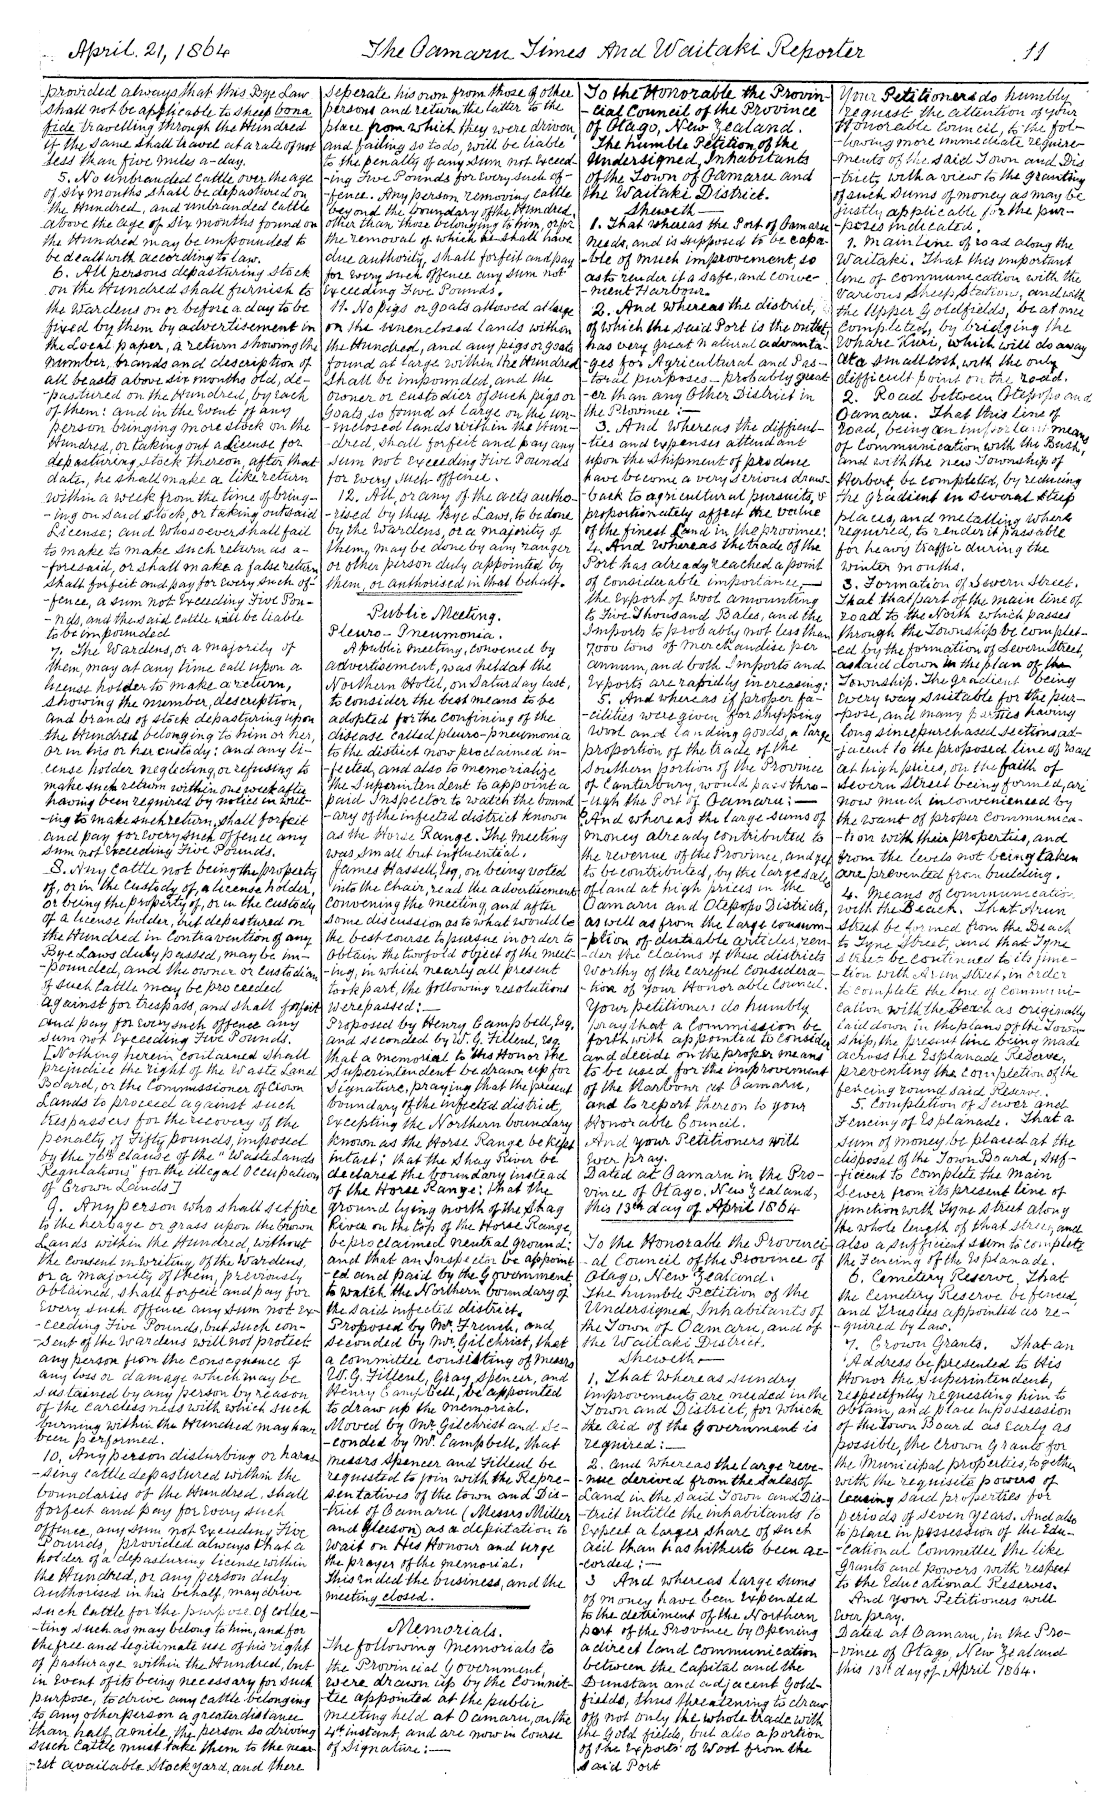 April. 21, 1864
The Oamaru Times And Waitaki Reporter
11
provided always that this Bye Law
shall not be applicable to sheep bona
fide travelling through the Hundred
if the same travel at a rate of not
less than five miles a-day.
5. No unbranded cattle over the age
of six months shall be depastured on
the Hundred, and unbranded cattle
above the age of six months found on
the Hundred may be impounded to
be dealt with according to law.
6. All persons depasturing stock
on the Hundred shall furnish to
the Wardens on or before a day to be
fixed by them by advertisement in
the Local paper, a return showing the
number, brands and description of
all beasts above six months old, de-
-pastured on the Hundred, by each
of them: and in the event of any
person bringing more stock on the
Hundred, or taking out a License for
depasturing stock thereon, after that
date, he shall make a like return
within a week from the time of bring-
-ing on said stock, or taking out said
License; and whosoever shall fail
to make to make such return as a-
-foresaid, or shall make a false return
shall forfeit and pay for every such of-
-fence, a sum not exceeding Five Pou-
-nds, and the said cattle will be liable
to be impounded
7. The Wardens, or a majority of
them, may at any time call upon a
license holder to make a return,
showing the number, description,
and brands of stock depasturing upon
the Hundred belonging to him or her,
or in his or her custody: and any li-
cense holder neglecting, or refusing to
make such return within one week after
having been required by notice in writ-
-ing to make such return, shall forfeit
and pay for every such offence any
sum not exceeding Five Pounds.
8. Any cattle not being the property
of, or in the custody of, a license holder,
or being the property of, or in the custody
of a license holder, but depastured on
the Hundred in contravention of any
Bye Laws duly passed, may be im-
-pounded, and the owner or custodian
of such cattle may be proceeded
against for trespass, and shall forfeit
and pay for every such offence any
sum not exceeding Five Pounds.
[Nothing herein contained shall
prejudice the right of the Waste Land
Board, or the Commissioner of Crown
Lands to proceed against such
trespassers for the recovery of the
penalty of Fifty pounds, imposed
by the 76th clause of the "Waste Lands
Regulations" for the illegal Occupation
of Crown Lands]
9. Any person who shall set fire
to the herbage or grass upon the Crown
Lands within the Hundred, without
the consent in writing of the Wardens,
or a majority of them, previously
obtained, shall forfeit and pay for
every such offence any sum not ex-
-ceeding Five Pounds, but such con-
-sent of the Wardens will not protect
any person from the consequence of
any loss or damage which may be
sustained by any person by reason
of the carelessness with which such
burning within the Hundred may have
been performed.
10. Any person disturbing or haras-
-sing cattle depastured within the
boundaries of the Hundred, shall
forfeit and pay for every such
offence, any sum not exceeding Five
Pounds, provided always that a
holder of a depasturing license within
the Hundred, or any person duly
authorised in his behalf, may drive
such cattle for the purpose of collec-
-ting such as may belong to him, and for
the free and legitimate use of his right
of pasturage within the Hundred, but
in event of its being necessary for such
purpose, to drive any cattle belonging
to any other person a greater distance
than half a mile, the person so driving
such cattle must take them to the near-
-est available Stockyard, and there
seperate his own from those of other
persons and return the latter to the
place from which they were driven,
and failing so to do, will be liable
to the penalty of any sum not exceed-
-ing Five Pounds for every such of-
-fence. Any person removing cattle
beyond the boundary of the Hundred,
other than those belonging to him, or for
the removal of which he shall have
due authority, shall forfeit and pay
for every such offence any sum not
exceeding Five Pounds.
11. No pigs or goats allowed at large
on the unenclosed lands within
the Hundred, and any pigs or goats
found at large within the Hundred
shall be impounded, and the
owner or custodier of such pigs or
goats, so found at large on the un-
-inclosed lands within the Hun-
-dred, shall forfeit and pay any
sum not exceeding Five Pounds
for every such offence.
12. All, or any of the acts autho-
-rised by these Bye Laws, to be done
by the Wardens, or a majority of
them, may be done by any ranger
or other person duly appointed by
them, or authorised in that behalf.
Public Meeting.
Pleuro-Pneumonia.
A public meeting, convened by
advertisement, was held at the
Northern Hotel, on Saturday last,
to consider the best means to be
adopted for the confining of the
disease called pleuro-pneumonia
to the district now proclaimed in-
-fected, and also to memorialize
the Superintendent to appoint a
paid Inspector to watch the bound
-ary of the infected district known
as the Horse Range. The meeting
was small but influential.
James Hassell, Esq, on being voted
into the chair, read the advertisement
convening the meeting, and after
some discussion as to what would be
the best course to pursue in order to
obtain the twofold object of the meet-
-ing, in which nearly all present
took part, the following resolutions
were passed:—
Proposed by Henry Campbell, Esq.
and seconded by W. G. Filleul, Esq
that a memorial to His Honor the
Superintendent be drawn up for
signature, praying that the present
boundary of the infected district,
excepting the Northern boundary
known as the Horse Range be kept
intact; that the Shag River be
declared the boundary instead
of the Horse Range; that the
ground lying north of the Shag
River on the top of the Horse Range,
be proclaimed neutral ground;
and that an Inspector be appoint
-ed and paid by the Government
to watch the Northern boundary of
the said infected district.
Proposed by Mr. French, and
seconded by Mr. Gilchrist, that
a committee consisting of Messrs
W. G. Filleul, Gray, Spencer, and
Henry Campbell, be appointed
to draw up the memorial.
Moved by Mr. Gilchrist and se-
-conded by Mr. Campbell, that
messrs Spencer and Filleul be
requested to join with the Repre-
sentatives of the town and Dis-
-trict of Oamaru (Messrs Miller
and Gleeson) as a deputation to
wait on His Honour and urge
the prayer of the memorial.
This ended the business, and the
meeting closed.
Memorials.
The following Memorials to
the Provincial Government,
were drawn up by the Commit-
-tee appointed at the public
meeting held at Oamaru, on the
4th instant, and are now in Course
of Signature:—
To the Honorable the Provin-
-cial Council of the Province
of Otago, New Zealand.
The humble Petition of the
Undersigned, Inhabitants
of the Town of Oamaru and
the Waitaki District.
Sheweth—
1. That whereas the Port of Oamaru
needs, and is supposed to be capa-
-ble of much improvement, so
as to render it a safe, and conve-
-nient Harbour.
2. And whereas the district,
of which the said Port is the outlet,
has very great natural advanta-
-ges for Agricultural and Pas-
-toral purposes—probably great
-er than any Other District in
the Province:—
3. And whereas the difficul-
-ties and expenses attendant
upon the Shipment of produce
have become a very serious draw-
-back to agricultural pursuits, &
proportionately affect the value
of the finest Land in the province:
4. And whereas the trade of the
Port has already reached a point
of considerable importance,—
the export of wool amounting
to Five Thousand Bales, and the
Imports to probably not less than
7,000 tons of merchandise per
annum, and both Imports and
Exports are rapidly increasing:
5. And whereas if proper fa-
-cilities were given for shipping
wool and landing goods, a large
proportion of the trade of the
southern portion of the Province
of Canterbury, would pass thro-
-ugh the Port of Oamaru:—
6. And whereas the large sums of
money already contributed to
the revenue of the Province, and yet
to be contributed, by the large sales
of land at high prices in the
Oamaru and Otepopo Districts,
as well as from the large consum-
-ption of dutiable articles, ren-
-der the claims of these districts
worthy of the careful considera-
-tion of your Honorable Council.
Your petitioners do humbly
pray that a Commission be
forthwith appointed to consider
and decide on the proper means
to be used for the improvement
of the Harbour at Oamaru,
and to report thereon to your
Honorable Council.
And your Petitioners will
ever pray.
Dated at Oamaru in the Pro-
-vince of Otago, New Zealand,
this 13th day of April 1864
To the Honorable the Provinci-
-al Council of the Province of
Otago, New Zealand.
The humble Petition of the
Undersigned, Inhabitants of
the Town of Oamaru, and of
the Waitaki District.
Sheweth—
1. That whereas sundry
improvements are needed in the
Town and District, for which
the aid of the Government is
required:—
2. And whereas the large reve-
-nue derived from the sales of
Land in the said Town and Dis-
-trict entitle the inhabitants to
expect a larger share of such
aid than has hitherto been ac-
-corded:—
3 And whereas large sums
of money have been expended
to the detriment of the Northern
part of the Province by Opening
a direct land communication
between the Capital and the
Dunstan and adjacent Gold-
-fields, thus threatening to draw
off not only the whole trade with
the Gold fields, but also a portion
of the exports of Wool from the
said Port
Your Petitioners do humbly
request the attention of your
Honorable Council, to the fol-
-lowing more immediate require-
-ments of the said Town and Dis-
-trict, with a view to the granting
of such sums of money as may be
justly applicable for the pur-
-poses indicated.
1. Main line of road along the
Waitaki. That this important
line of communication with the
various Sheep Stations, and with
the Upper Goldfields, be at once
completed, by bridging the
Whare Kuri, which will do away
at a small cost, with the only
difficult point on the road.
2. Road between Otepopo and
Oamaru. That this line of
road, being an important means
of Communication with the Bush,
and with the new Township of
Herbert, be completed, by reducing
the gradient in several steep
places, and metalling where
required, to render it passable
for heavy traffic during the
winter months.
3. Formation of Severn Street.
That that part of the main line of
road to the North which passes
through the Township be complet-
-ed by the formation of Severn Street,
as laid down in the plan of the
Township. The gradient being
every way suitable for the pur-
-pose, and many parties having
long since purchased sections ad-
-jacent to the proposed line of road
at high prices, on the faith of
Severn Street being formed, are
now much inconvenienced by
the want of proper communica-
-tion with their properties, and
from the levels not being taken
are prevented from building.
4. Means of communication
with the Beach. That Arun
Street be formed from the Beach
to Tyne Street, and that Tyne
Street be continued to its junc-
-tion with Arun Street, in order
to complete the line of communi-
cation with the Beach as originally
laid down in the plans of the Town-
ship, the present line being made
across the Esplanade Reserve,
preventing the completion of the
fencing round said Reserve.
5. Completion of Sewer and
Fencing of Esplanade. That a
sum of money be placed at the
disposal of the Town Board, suf-
-ficient to complete the Main
Sewer from its present line of
junction with Tyne street along
the whole length of that street, and
also a sufficient sum to complete
the Fencing of the Esplanade.
6. Cemetery Reserve. That
the Cemetery Reserve be fenced
and Trustees appointed as re-
-quired by Law.
7. Crown Grants. That an
Address be presented to His
Honor the Superintendent,
respectfully requesting him to
obtain, and place in possession
of the Town Board as early as
possible, the Crown Grants for
the Municipal properties, together
with the requisite powers of
leasing said properties for
periods of seven years. And also
to place in possession of the Edu-
-cational Committee the like
Grants and powers with respect
to the Educational Reserves.
And your Petitioners will
ever pray.
Dated at Oamaru, in the Pro-
-vince of Otago, New Zealand
this 13th day of April 1864.